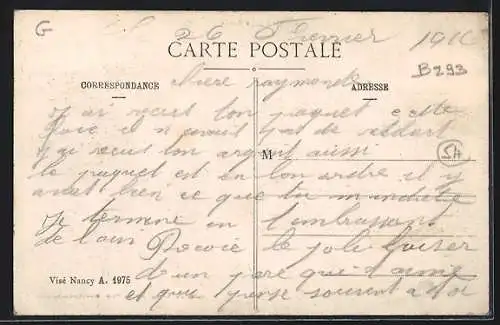 G
26 Fevrier 191
CARTE POSTALE
B293
CORRESPONDANCE
ADRESSE
chere raymonde
j ai recus ton paquet cette
fois il n avait pas de retart
j ai recus ton argent aussi
M
SH
le paquet est en bon ordre il y
avait bien ce que tu
Je termine en t'embrassant
de loin le joli baiser
d'un pere qui t'aime
et que pense souvent a toi
Visé Nancy A. 1975